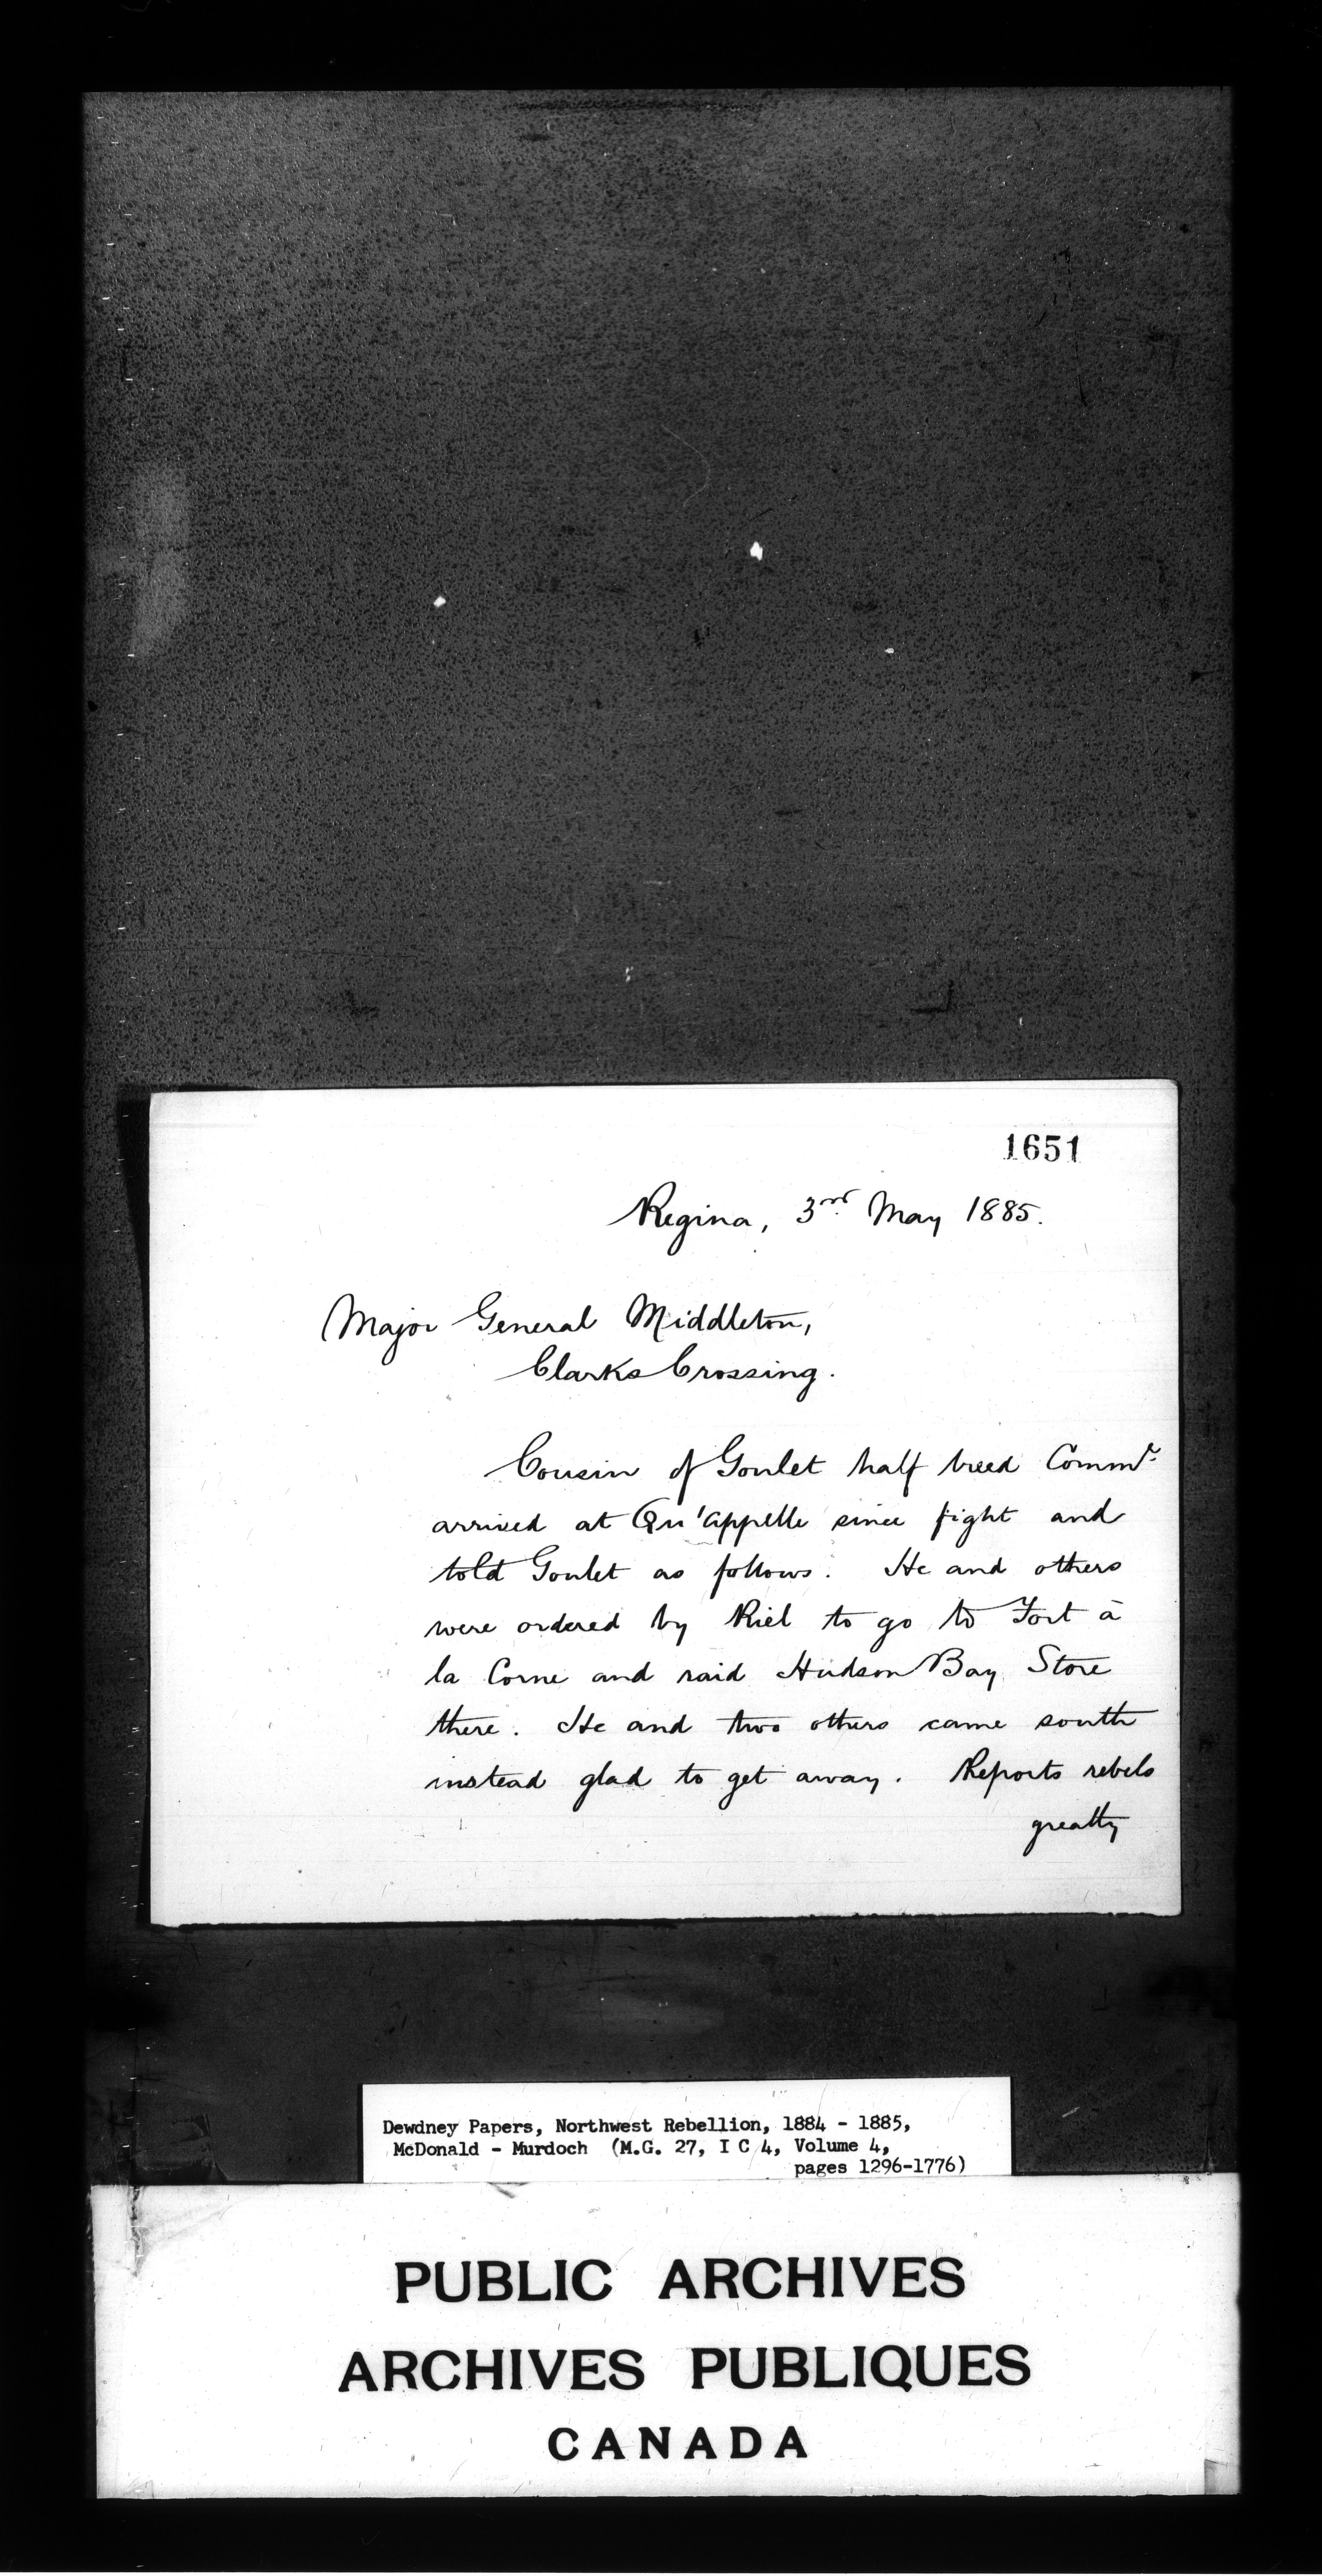 1651
Regina, 3rd May 1885.
Major General Middleton,
Clarks Crossing.
Cousin of Goulet half breed Commr.
arrived at Qu'appelle since fight and
told Goulet as follows. He and others
were ordered by Riel to go to Fort à
la Corne and raid Hudson Bay Store
there. He and two others came south
instead glad to get away. Reports rebels
greatly
Dewdney Papers, Northwest Rebellion, 1884 - 1885,
McDonald - Murdoch (M.G. 27, I C 4, Volume 4,
pages 1296-1776)
PUBLIC ARCHIVES
ARCHIVES PUBLIQUES
CANADA